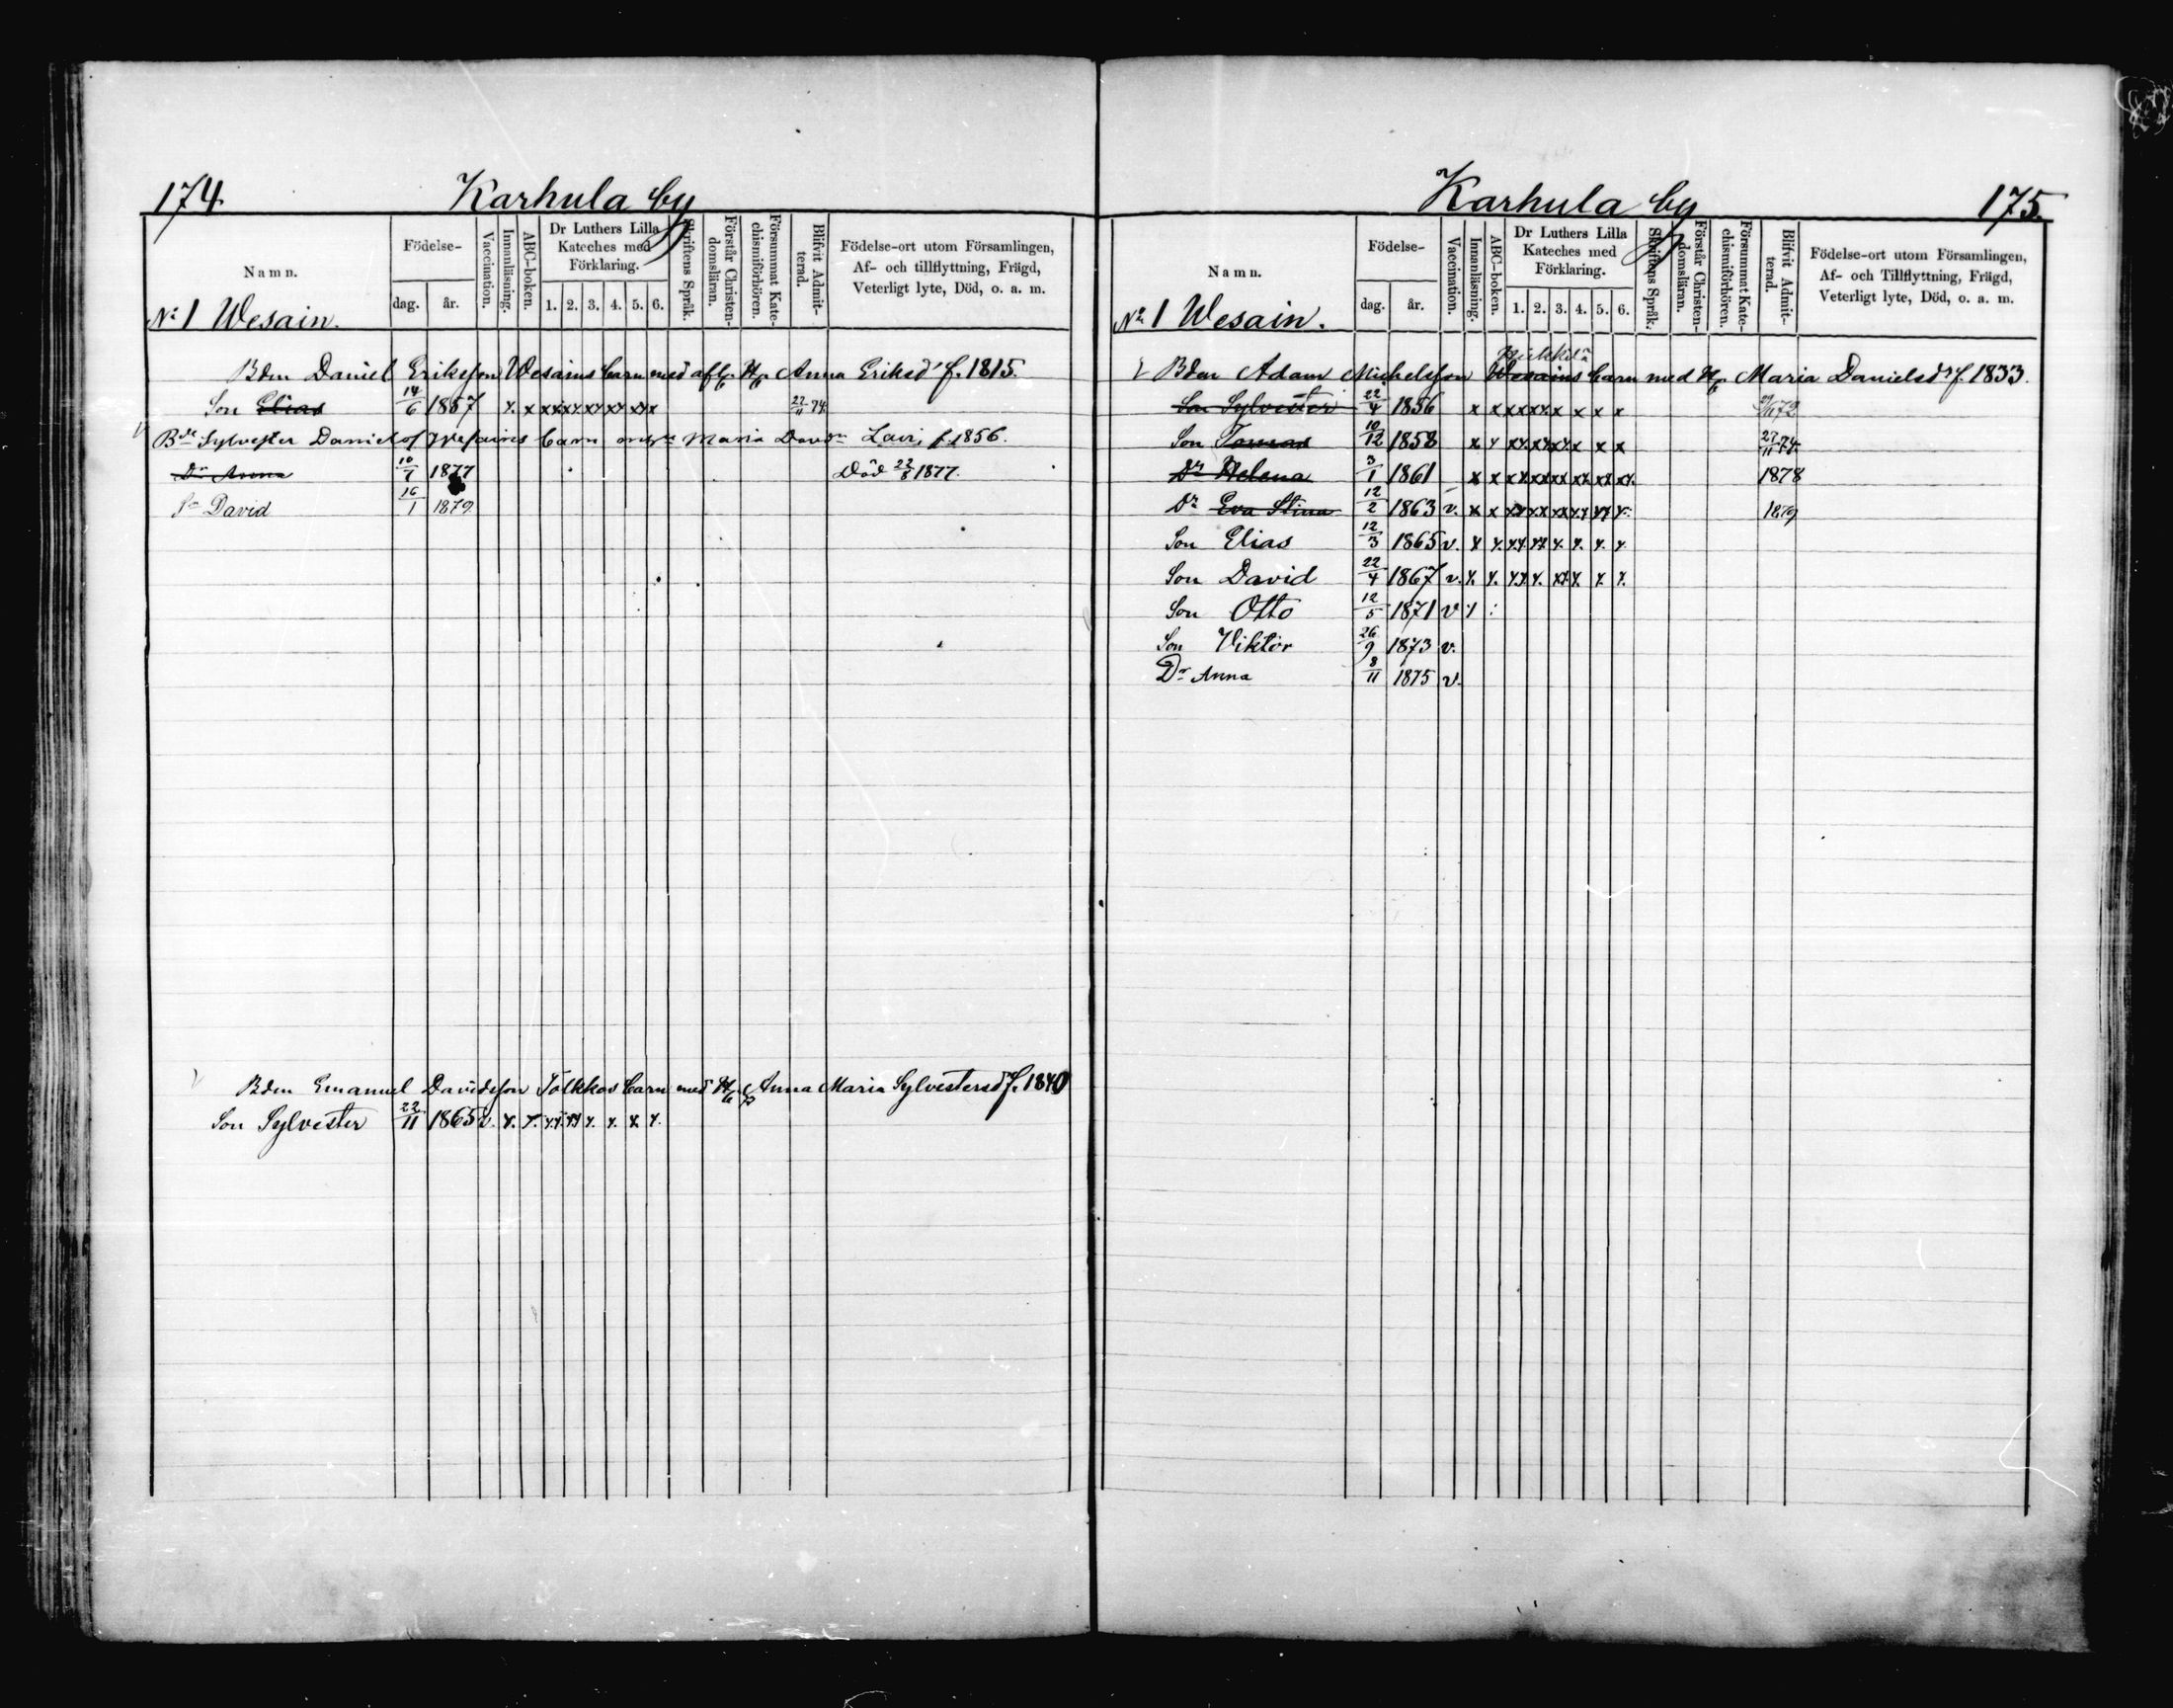 174. Karhula by
Namn. Födelse- dag. år. Vaccination. Innanläsning. ABC-boken. Dr Luthers Lilla Kateches med Förklaring. 1. 2. 3. 4. 5. 6. Skriftens Språk. Förstår Christen-domsläran. Försummat Kate-chismiförhören. Blifvit Admit-terad. Födelse-ort utom Församlingen, Af- och tillflyttning, Frägd, Veterligt lyte, Död, o. a. m.
No 1 Wesain.
Bdn Daniel Eriksson Wesains barn med afl. H. Anna Eriksdr f. 1815.
Son Elias 14/6 1857 x x xx xx xx xx xx x 22/11 74
Bde Sylvester Daniel Wesains barn Maria Davdr Lauri f. 1856.
Dr Anna 10/7 1877 Död 22/8 1877.
Sn David 16/1 1879
Bdn Emanuel Davidsson Tolkkas barn med H. Anna Maria Sylvestersdr f. 1840
Son Sylvester 22/11 1865 v. x. x. x.x. xx x. x. x x.
Karhula by 175.
Namn. Födelse- dag. år. Vaccination. Innanläsning. ABC-boken. Dr Luthers Lilla Kateches med Förklaring. 1. 2. 3. 4. 5. 6. Skriftens Språk. Förstår Christen-domsläran. Försummat Kate-chismiförhören. Blifvit Admit-terad. Födelse-ort utom Församlingen, Af- och Tillflyttning, Frägd, Veterligt lyte, Död, o. a. m.
No 1 Wesain.
Bdn Adam Michelsson Wesains barn med H. Maria Danielsdr f. 1833.
Son Sylvester 22/4 1856 x x xx xx x x x x
Son 10/12 1858 x x xx xx xx x x x 27/11 74.
Dr Helena 3/1 1861 x x xx xx xx xx xx xx. 1878
Dr Eva Stina 12/2 1863 v. x x xx xx xx xx xx x. 1879
Son Elias 12/3 1865 v. x x. xx xx x. x. x. x.
Son David 22/4 1867 v. x. x. xx x. xx x. x. x.
Son Otto 12/5 1871 v
Son Viktor 26/9 1873 v.
Dr Anna 8/11 1875 v.